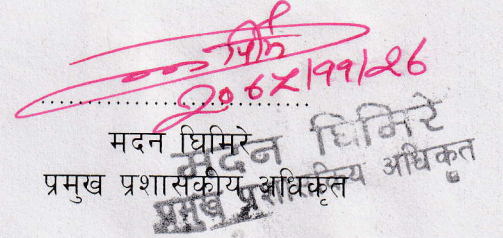 206५/११/२६
....................................
मदन घिमिरे
प्रमुख प्रशासकीय अधिकृत
मदन घिमिरे
प्रमुख प्रशासकीय अधिकृत